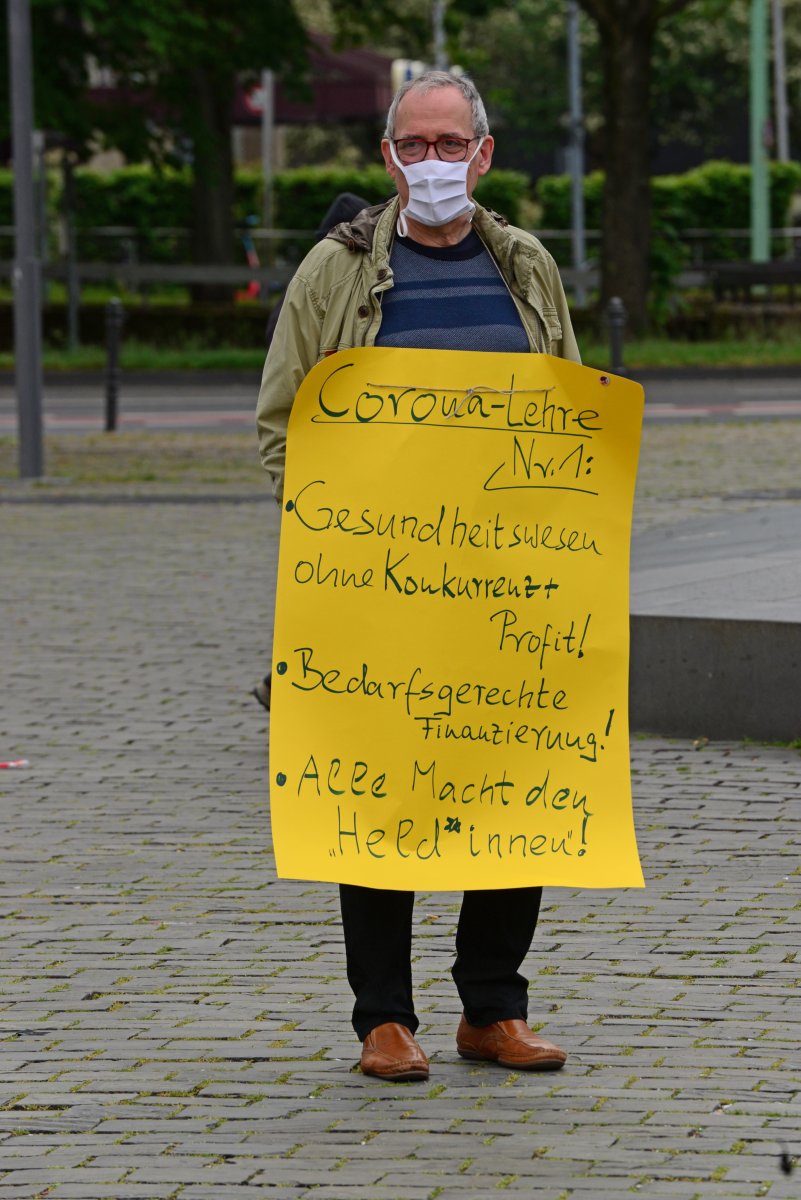 Corona-Lehre
Nr. 1:
• Gesundheitswesen
ohne Konkurrenz +
Profit!
• Bedarfsgerechte
Finanzierung!
• Alle Macht den
„Held*innen"!